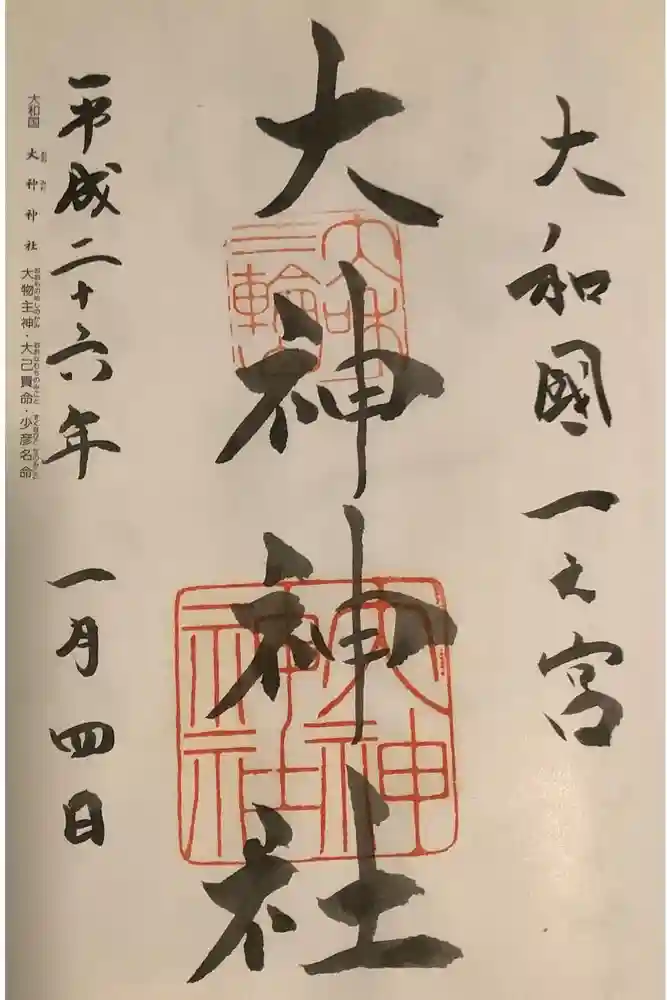 大和國一之宮
大神神社
大和
三輪
大神
神社
平成二十六年 一月四日
大和国 大神神社 大物主神・大己貴命・少彦名命
おお みわ おおものぬしのかみ おおなむちのみこと すくなひこなのみこと